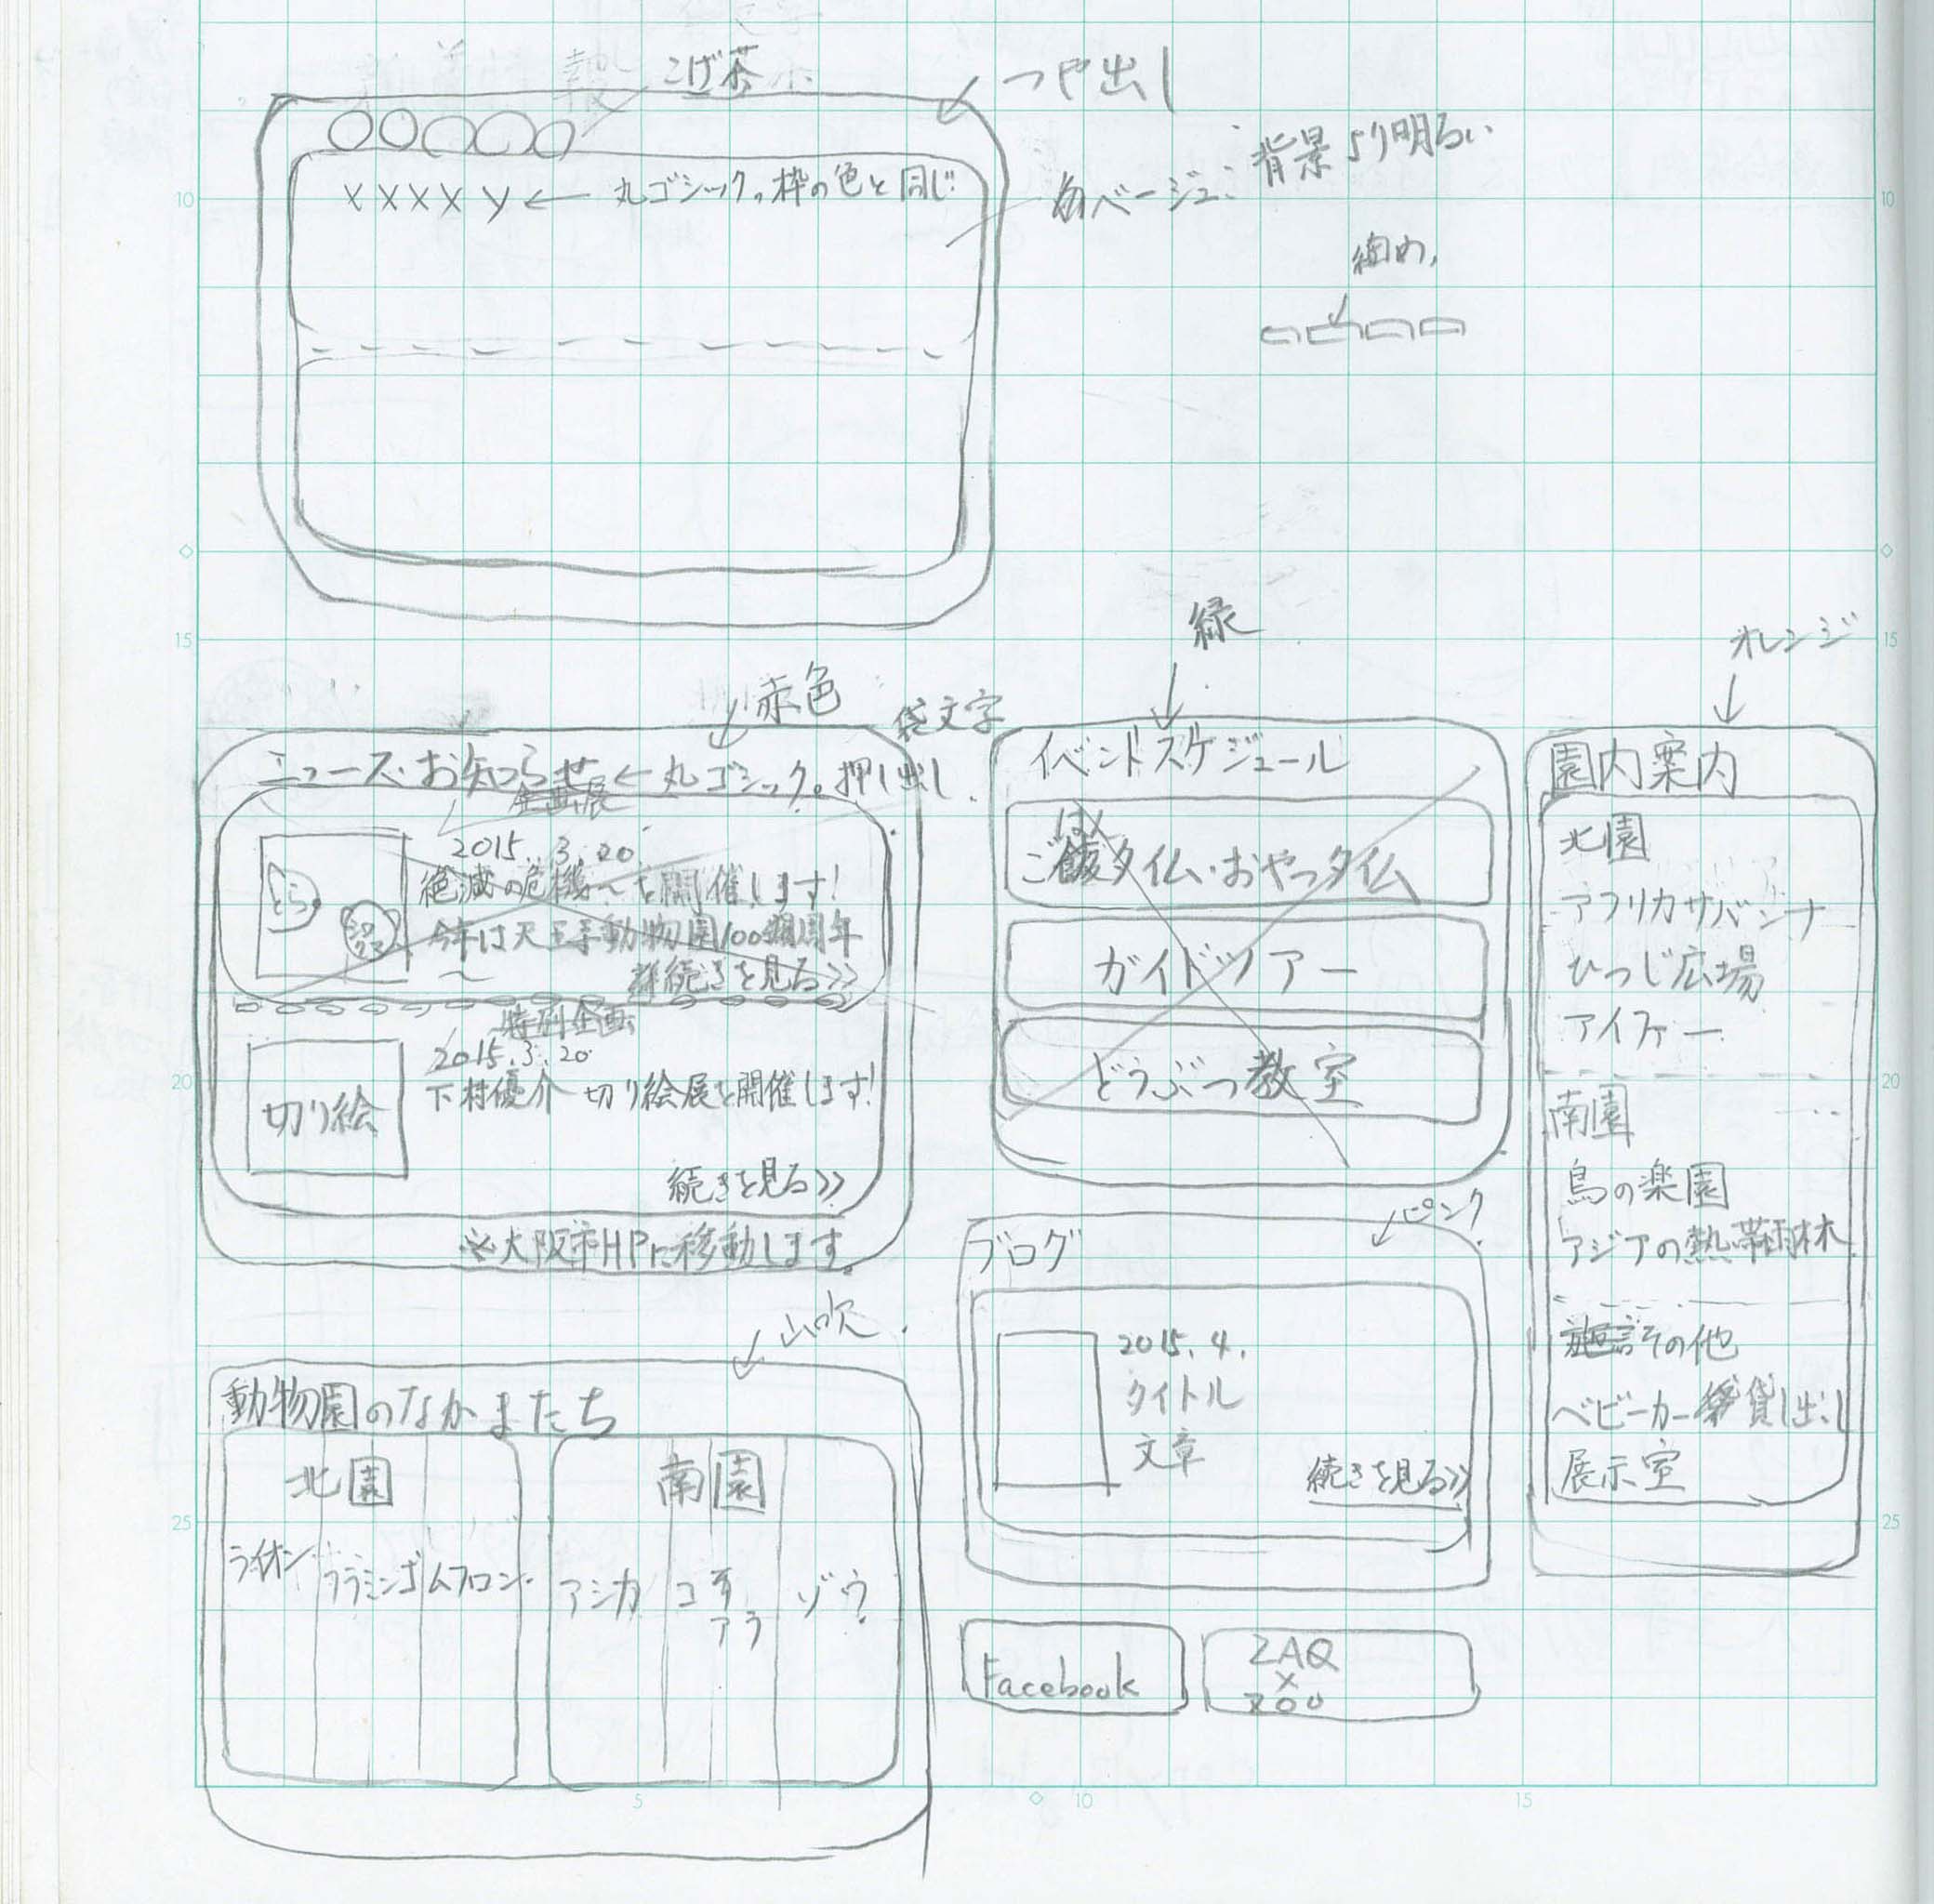 こげ茶
つや出し
○○○○○
××××× ← 丸ゴシック。枠の色と同じ
ベージュ:背景より明るい
細め,
10
10
15
15
赤色
袋文字
ニュース・お知らせ ← 丸ゴシック。押し出し.
企画展
2015. 3. 20.
絶滅の危機〜を開催します!
今年は天王寺動物園100周年
〜
続きを見る>>
とら
シロクマ
特別企画
2015.3.20.
下村優介 切り絵展を開催します!
切り絵
続きを見る>>
※大阪市HPに移動します。
緑
イベントスケジュール
ごはんタイム・おやつタイム
ガイドツアー
どうぶつ教室
オレンジ
園内案内
北園
アフリカサバンナ
ひつじ広場
アイファー
南園
鳥の楽園
アジアの熱帯雨林
その他
ベビーカー貸し出し
展示室
20
20
ピンク
ブログ
2015. 4.
タイトル
文章
続きを見る>>
山吹.
動物園のなかまたち
北園
ライオン
フラミンゴ
ムフロン
南園
アシカ
コアラ
ゾウ
Facebook
ZAQ
×
ZOO
25
25
5
10
15